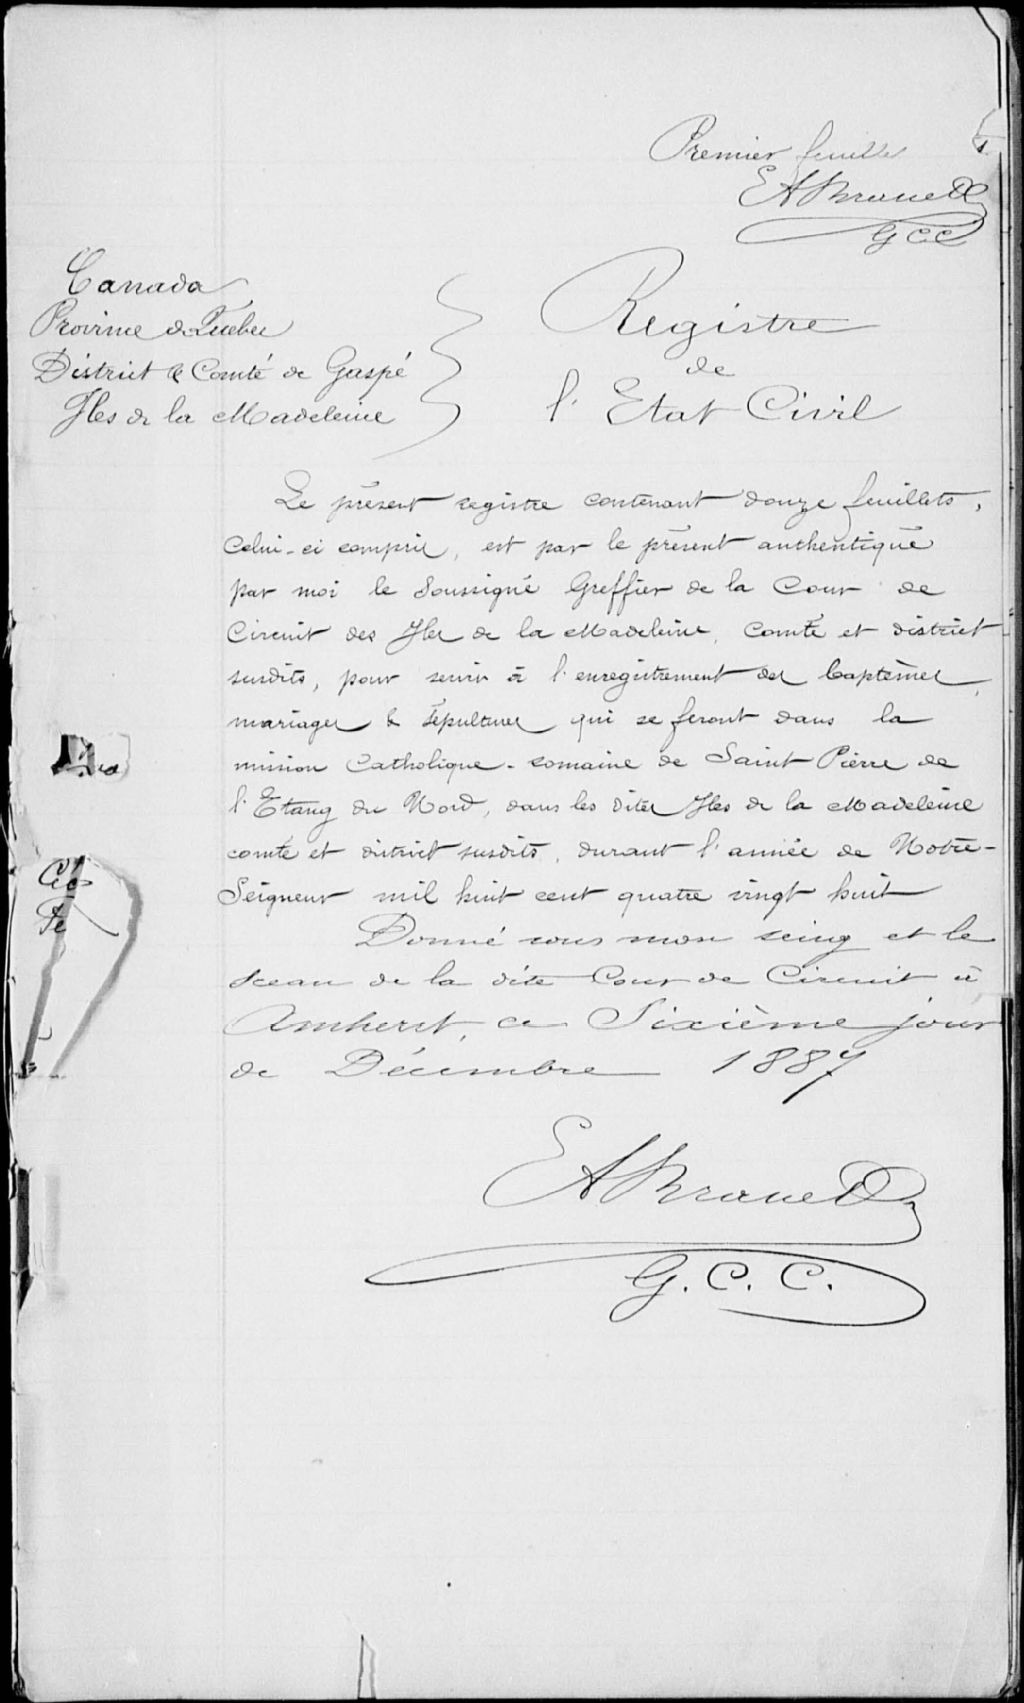 Premier feuille
E A Brunet
G C C
Canada
Province de Québec
District & Comté de Gaspé
Iles de la Madeleine
Registre
de
l'Etat Civil
Le présent registre contenant douze feuillets,
celui-ci compris, est par le présent authentiqué
par moi le soussigné Greffier de la Cour de
Circuit des Iles de la Madeleine, comté et district
susdits, pour servir à l'enregistrement des baptêmes,
mariages & sépultures qui se feront dans la
mission Catholique-romaine de Saint Pierre de
l'Etang du Nord, dans les dites Iles de la Madeleine
comté et district susdits, durant l'année de Notre-
Seigneur mil huit cent quatre vingt huit
Donné sous mon seing et le
sceau de la dite Cour de Circuit à
Amherst, ce Sixième jour
de Décembre 1887
E A Brunet
G. C. C.